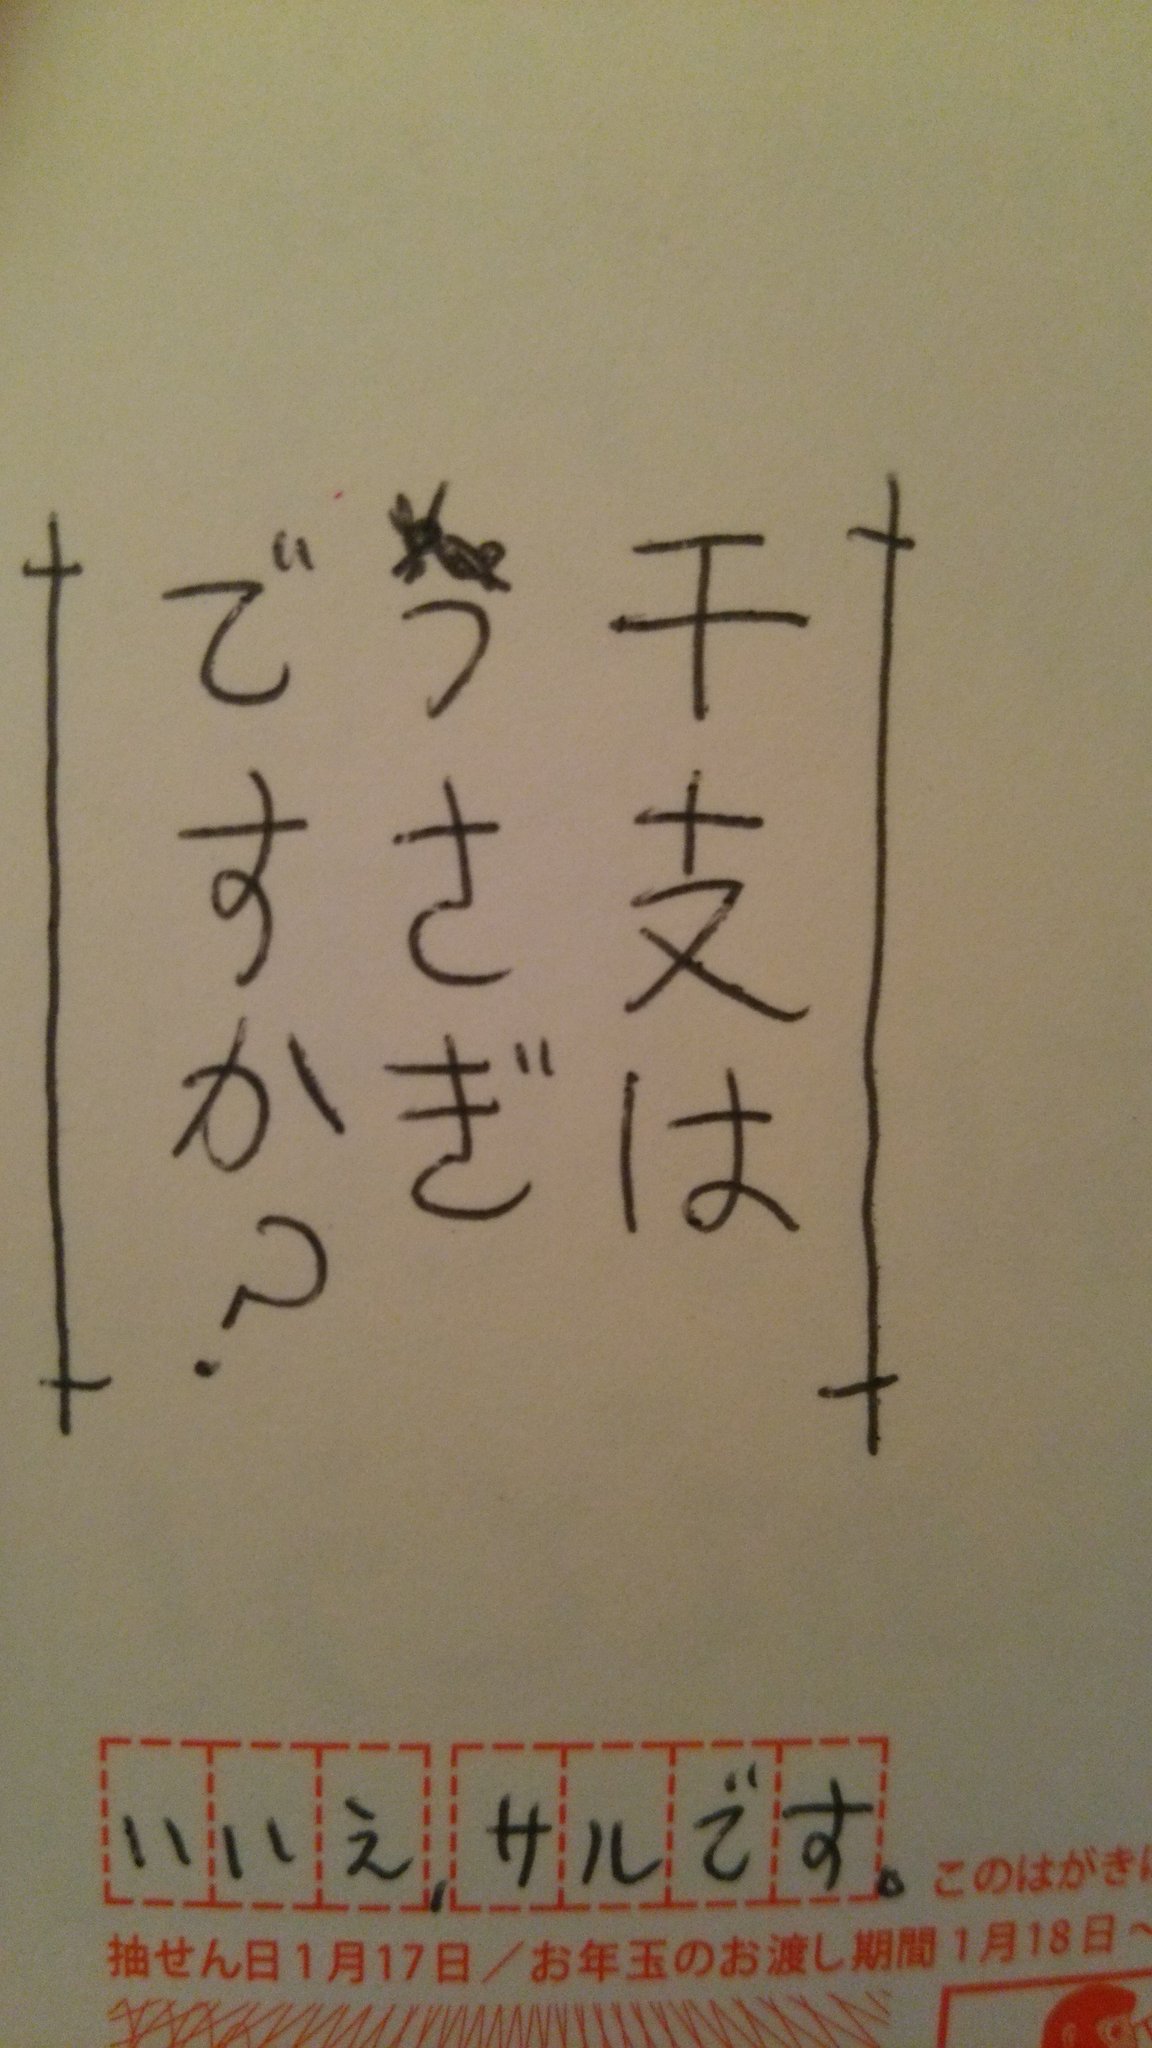 干支は
うさぎ
ですか?
いいえ,サルです。
このはがきは
抽せん日1月17日/お年玉のお渡し期間1月18日~